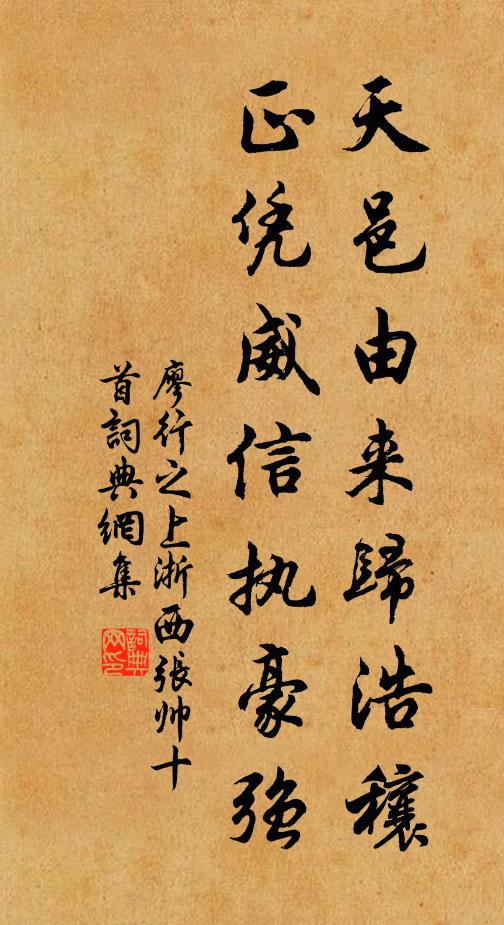 天邑由来歸浩穰
正凭威信执豪強
廖行之上浙西張帅十
首詞典網集
詞典网印